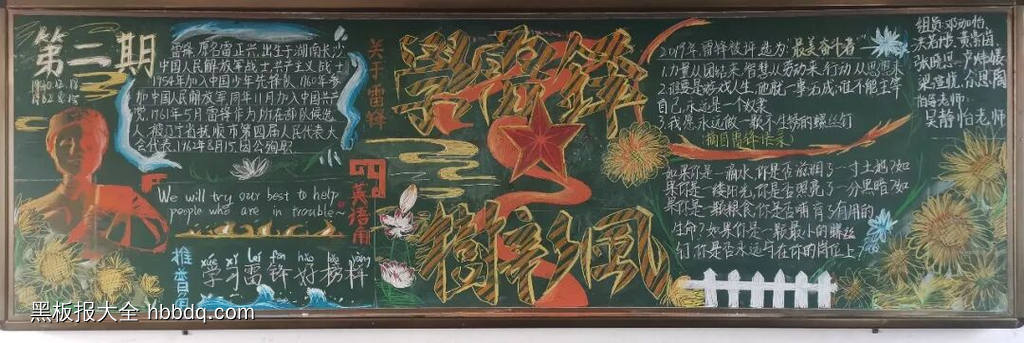 第二期
1940.12.18
1962.8.15
雷锋,原名雷正兴,出生于湖南长沙
中国人民解放军战士,共产主义战士
1954年加入中国少年先锋队,1960年参
加中国人民解放军,同年11月加入中国共产
党,1961年5月雷锋作为所在部队候选
人,被辽宁省抚顺市第四届人民代表大
会代表,1962年8月15,因公殉职
关于雷锋
We will try our best to help
people who are in trouble~
英语角
推普角
xué xí léi fēng hǎo bǎng yàng
学习雷锋好榜样
學雷鋒
樹新風
2019年雷锋被评选为:最美奋斗者
1.力量从团结来,智慧从劳动来,行动从思想来
2.谁要是游戏人生,他就一事无成,谁不能主宰
自己,永远是一个奴隶
3.我愿永远做一颗不生锈的螺丝钉
摘自雷锋语录
如果你是一滴水,你是否滋润了一寸土地?如
果你是一缕阳光,你是否照亮了一分黑暗?如
果你是一颗粮食,你是否哺育了有用的
生命?如果你是一颗最小的螺丝
钉,你是否永远守在你的岗位上?
组员:
指导老师:
吴静怡老师
黑板报大全 hbbdq.com